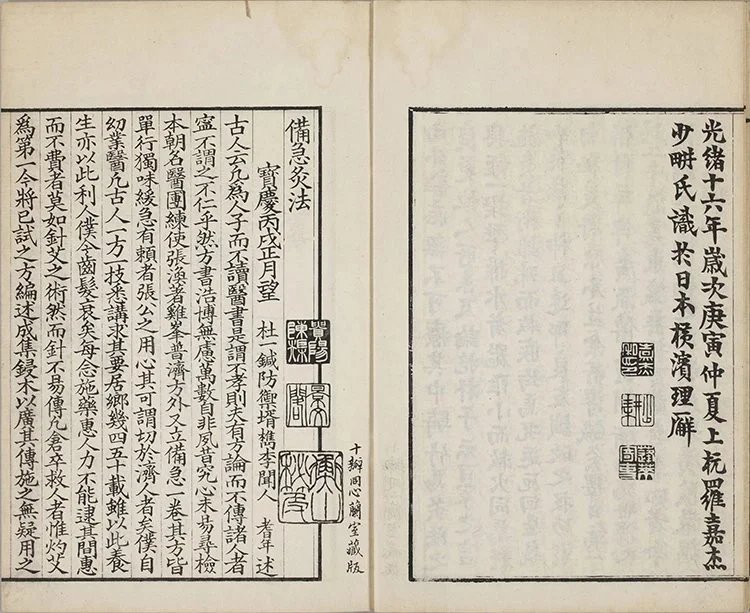 光緒十六年歲次庚寅仲夏上杭羅嘉杰
少畊氏識扵日本橫濱理廨
十瓣同心蘭室藏版
備急灸法
寶慶丙戌正月望 杜一鍼防禦壻檇李聞人 耆年 述
古人云凡爲人子而不讀醫書是謂不孝則夫有方論而不傳諸人者
寧不謂之不仁乎然方書浩博無慮萬數自非夙昔究心未易尋檢
本朝名醫團練使張渙著雞峯普濟方外又立備急一卷其方皆
單行獨味緩急有賴者張公之用心其可謂切於濟人者矣僕自
幼業醫凡古人一方一技悉講求其要居鄉幾四五十載雖以此養
生亦以此利人僕今齒髮衰矣每念施藥惠人力不能逮其間惠
而不費者莫如針艾之術然而針不易傳凡倉卒救人者惟灼艾
爲第一今將已試之方編述成集鋟木以廣其傳施之無疑用之